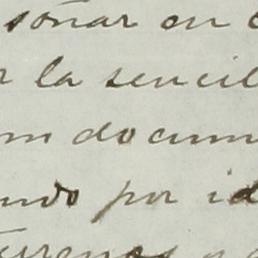 soñar en
r la sencil
m docum
undo por id